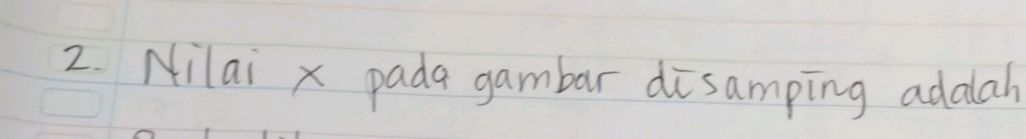 2. Nilai x pada gambar disamping adalah